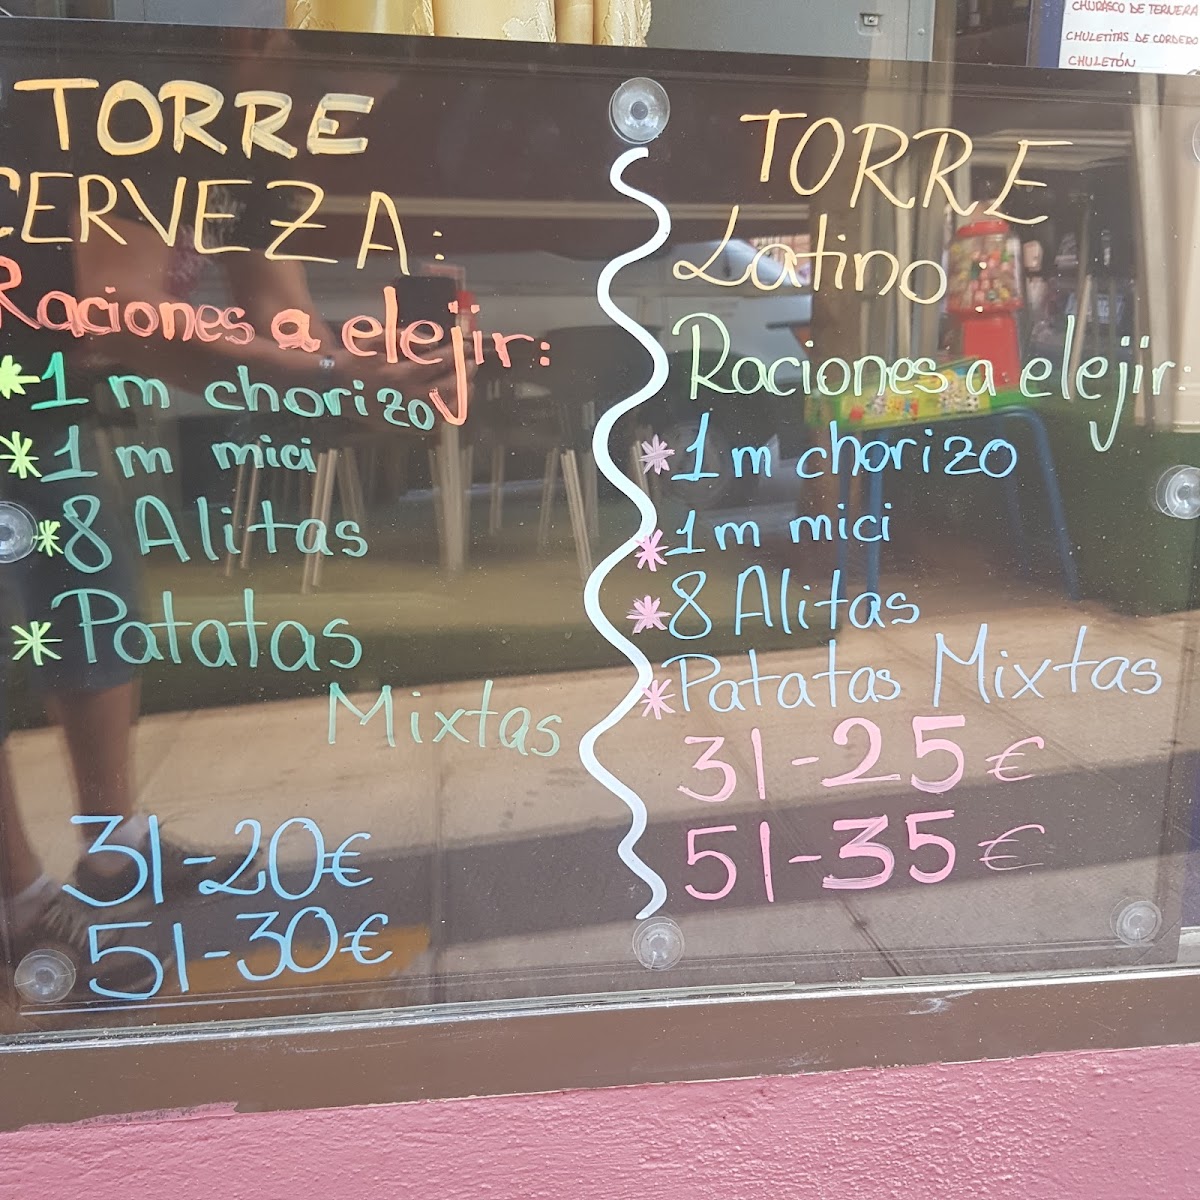 CHURASCO DE TERNERA
CHULETITAS DE CORDERO
CHULETÓN
TORRE
CERVEZA:
Raciones a elejir:
*1 m chorizo
*1 m mici
*8 Alitas
*Patatas
Mixtas
3l-20€
5l-30€
TORRE
Latino
Raciones a elejir:
*1m chorizo
*1m mici
*8 Alitas
*Patatas Mixtas
3l-25€
5l-35€